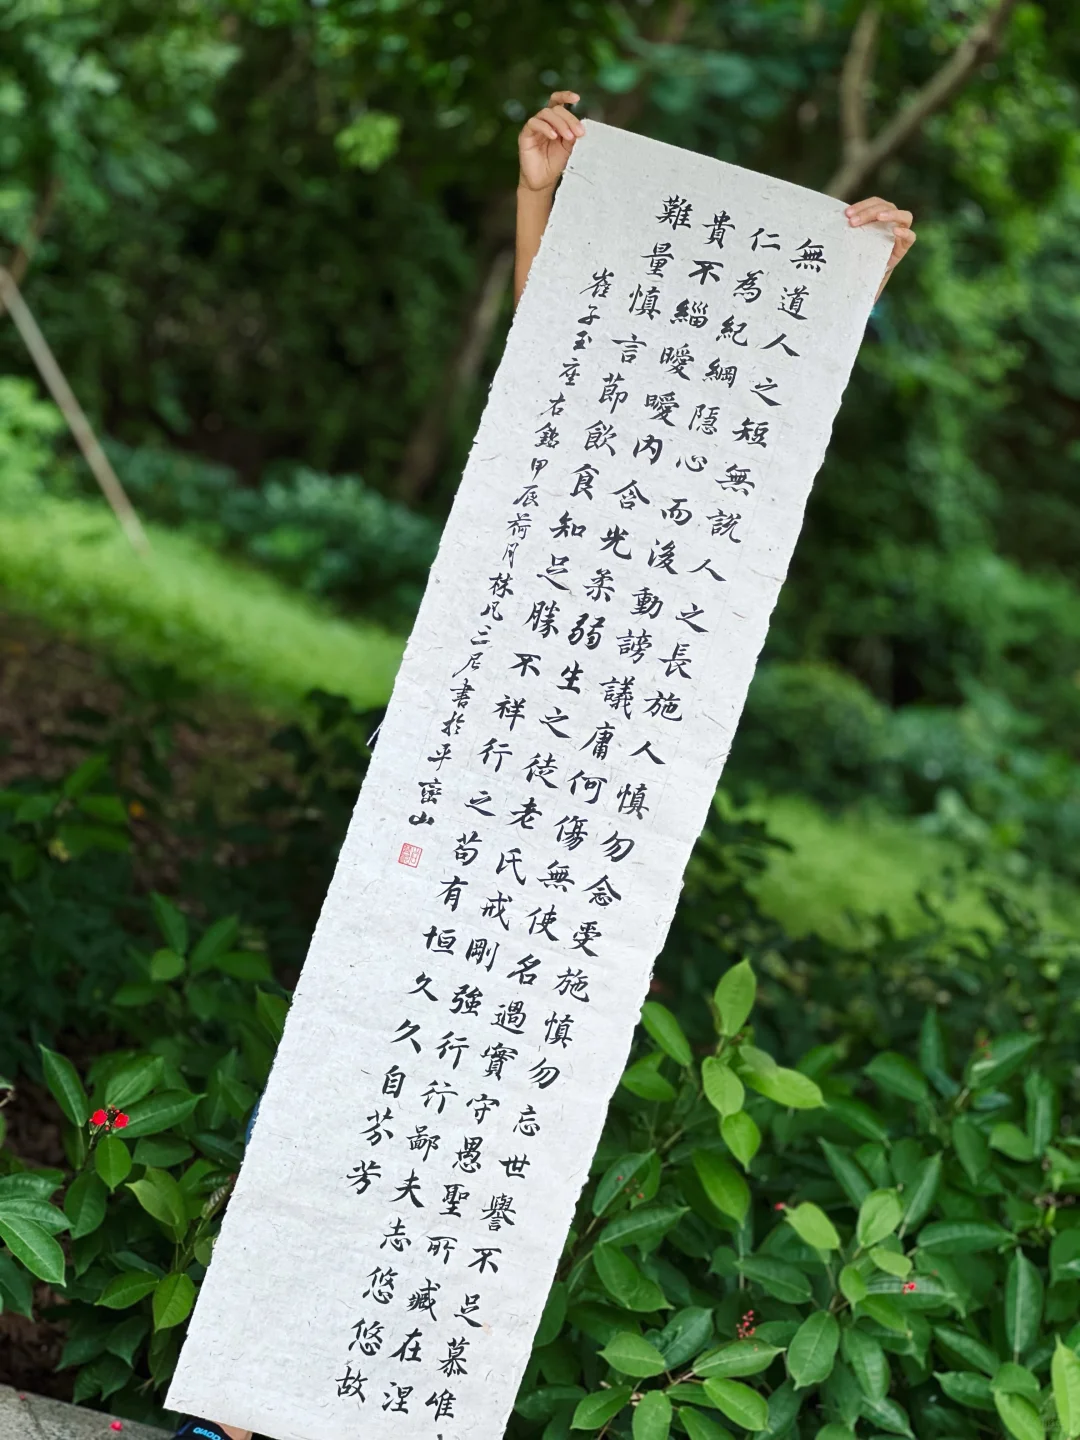 無道人之短無說人之長施人慎勿念受施慎勿忘世譽不足慕唯
仁為紀綱隱心而後動謗議庸何傷無使名過實守愚聖所臧在涅
貴不緇曖曖內含光柔弱生之徒老氏戒剛強行行鄙夫志悠悠故
難量慎言節飲食知足勝不祥行之苟有恒久久自芬芳
崔子玉座右銘甲辰荷月林凡三書於平巒山